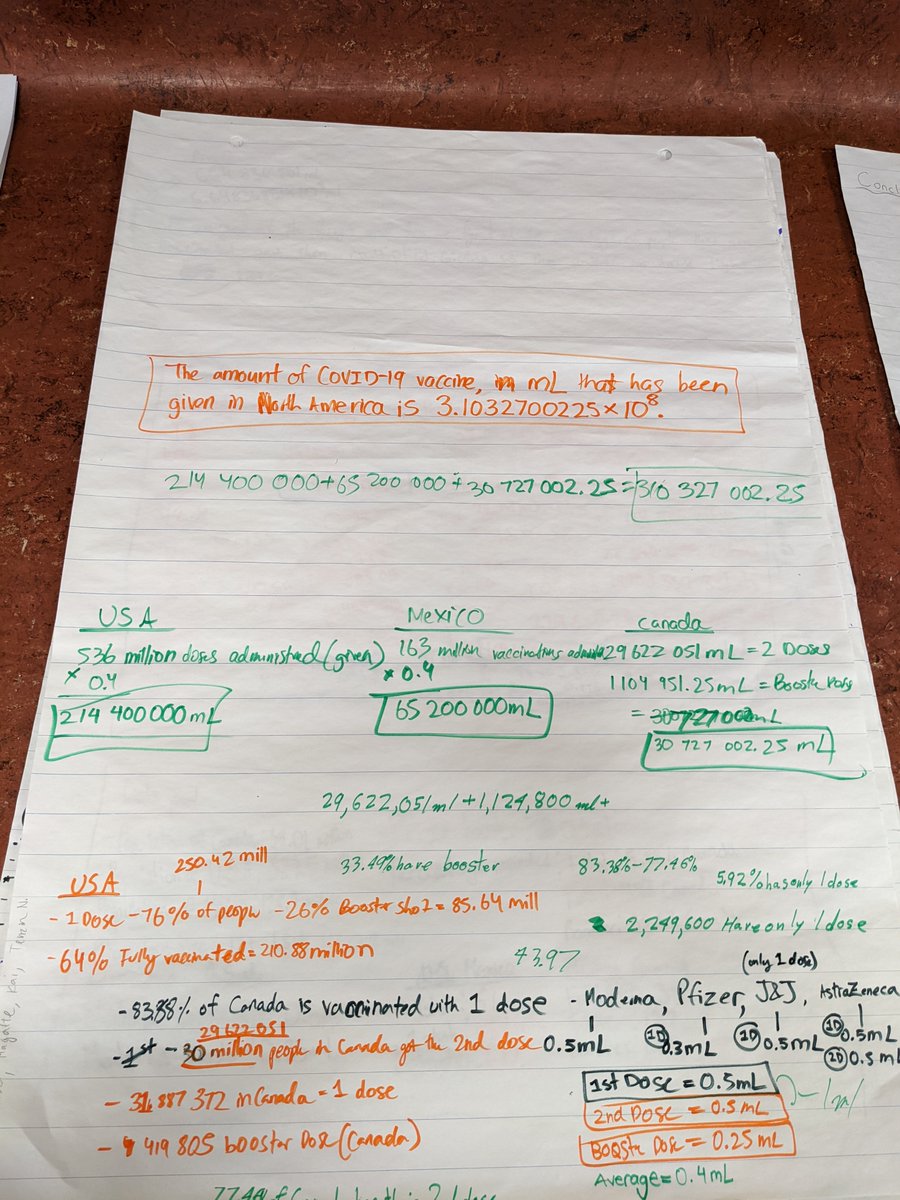 The amount of COVID-19 vaccine, in mL that has been
given in North America is 3.1032700225×10⁸.
214 400 000+65 200 000+30 727 002.25=310 327 002.25
USA
536 million doses administred (given)
× 0.4
214 400 000 mL
Mexico
163 million vaccinations
× 0.4
65 200 000 mL
Canada
29 622 051 mL = 2 Doses
1104 951.25 mL = Booster
=
30 727 002.25 mL
29,622,051 ml + 1,124,800 ml +
33.49% have booster
83.38%-77.46%
5.92% has only 1 dose
2,249,600 Have only 1 dose
43.97
USA
250.42 mill
- 1 Dose - 76% of people - 26% Booster shot = 85.64 mill
- 64% Fully vaccinated = 210.88 million
- 83.38% of Canada is vaccinated with 1 dose
29 622 051
- 1st - 30 million people in Canada got the 2nd dose
- 31 887 372 in Canada = 1 dose
- 419 805 booster Dose (Canada)
(only 1 dose)
- Moderna, Pfizer, J&J, AstraZeneca
0.5mL 1D 0.3mL 1D 0.5mL 1D 0.5mL
2D 0.5mL
1st Dose = 0.5mL
2nd Dose = 0.5 mL
Booste Dose = 0.25 mL
Average = 0.4mL
Magalie, Kai, N.